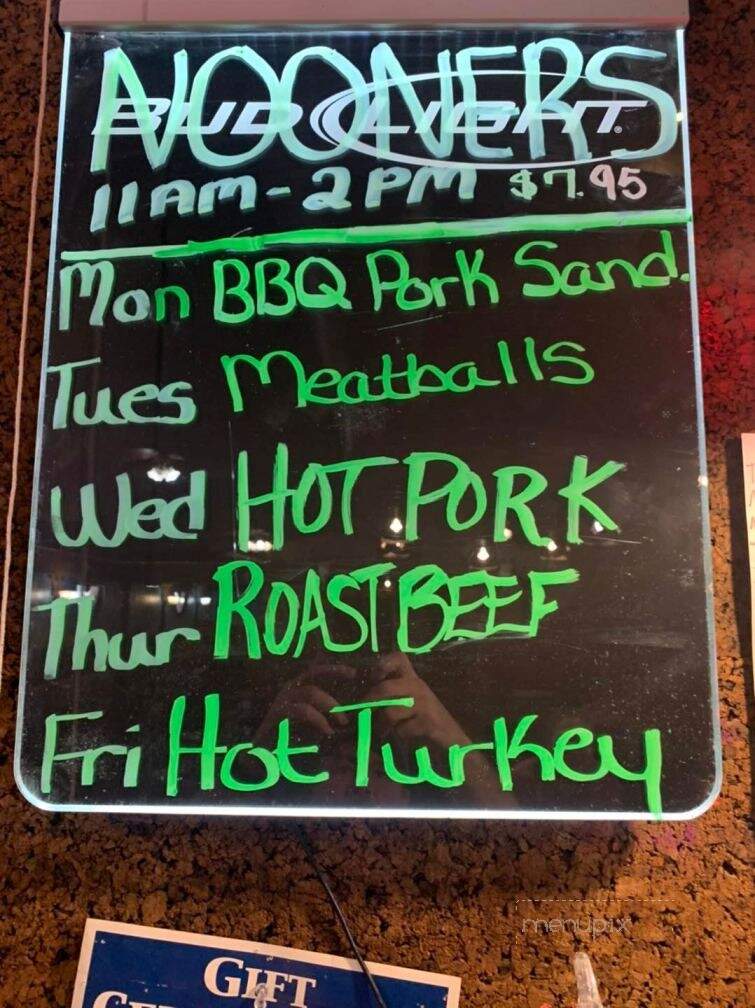 NOONERS
BUD LIGHT
11AM - 2PM $7.95
Mon BBQ Pork Sand.
Tues Meatballs
Wed HOT PORK
Thur ROAST BEEF
Fri Hot Turkey
menupix
GIFT